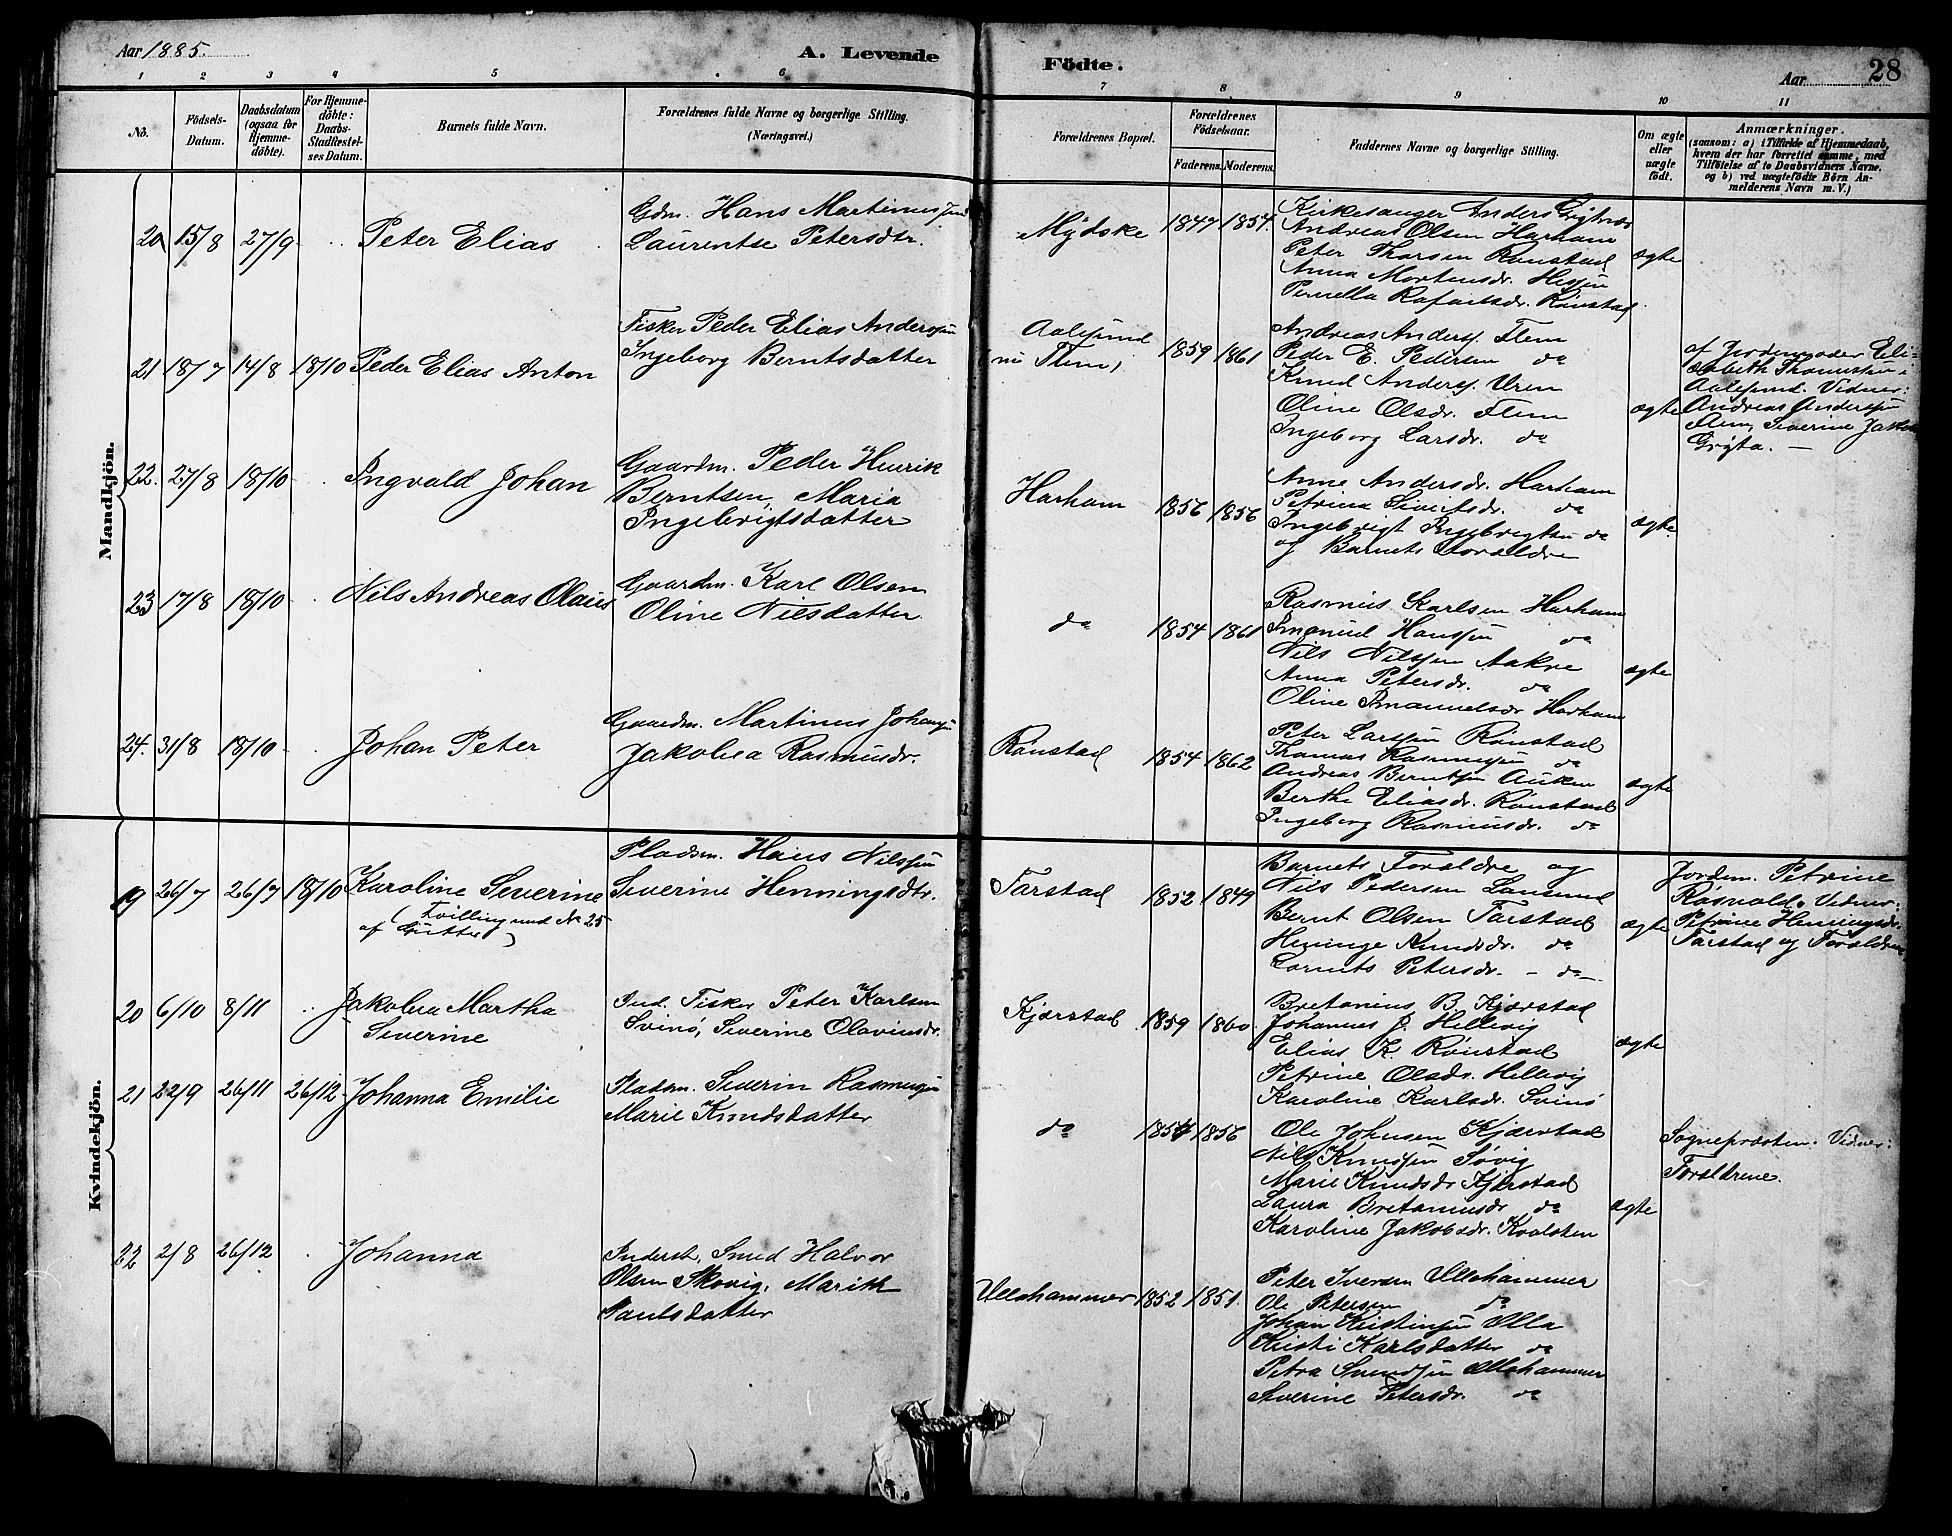 Aar 1885.
A. Levende Födte.
Aar
28
1 2 3 4 5 6 7 8 9 10 11
No.
Födsels-Datum.
Daabsdatum (ogsaa for Hjemme-döbte).
For Hjemme-döbte: Daabs-Stadfæstel-ses Datum.
Barnets fulde Navn.
Forældrenes fulde Navne og borgerlige Stilling.
(Næringsvei.)
Forældrenes Bopæl.
Forældrenes Födselsaar.
Faderens. Moderens.
Faddernes Navne og borgerlige Stilling.
Om ægte eller uægte födt.
Anmærkninger.
(saasom: a) i Tilfælde af Hjemmedaab,
hvem der har forrettet samme, med
Tilföielse af to Daabsvidners Navne,
og b) ved uægtefödte Börn An-
melderens Navn m. V.)
Mandkjön.
20 15/8 27/9 Peter Elias
Gdm. Hans Martinus
Laurentse Petersdtr.
Mydske 1847 1854.
Kirkesanger Anders Grytnes
Andreas Olsen Harham
Peter Thorsen Rönstad
Anna Mortensdr. Hessen
Pernella Rafaelsdr. Rönstad
ægte
21 18/7 14/8 18/10 Peder Elias Anton
Fisker Peder Elias Anderssen
Ingeborg Berntsdatter
Aalesund
(nu Flem) 1859 1861
Andreas Anders. Flem
Peder E. Pedersen do
Knud Anders. Uren
Oline Olsdr. Flem
Ingeborg Larsdr. do
ægte
af Jordemoder Eli-
sabeth Thomessen i
Aalesund. Vidner:
Andreas Anderssen
Flem, Severine Jakobs
Gryta. —
22. 27/8 18/10 Ingvald Johan
Gaardm. Peder Henrik
Berntsen, Maria
Ingebrigtsdatter
Harham 1856 1856
Anne Andersdr. Harham
Petrina Sivertsdr. do
Ingebrigt Ingebrigtsen do
og Barnets Forældre
ægte
23 17/8 18/10 Nils Andreas Olaus
Gaardm. Karl Olsen
Oline Nilsdatter
do 1854 1861
Rasmus Karlsen Harham
Emanuel Hanssen do
Nils Nilssen Aakre
Anna Petersdr. do
Oline Emanuelsdr Harham
ægte
24. 31/8 18/10 Johan Peter
Gaardm. Martinus Johanss
Jakobea Rasmusdr.
Rönstad 1854 1862
Peter Larssen Rönstad
Thomas Rasmussen do
Andreas Berntsen Auken
Berthe Eliasdr. Rönstad
Ingeborg Rasmusdr. do
ægte
Kvindekjön.
19 26/7 26/7 18/10 Karoline Severine
(Tvilling med No 25
af Gutter)
Pladsm. Hans Nilssen
Severine Henningsdtr.
Farstad 1852 1849
Barnets Forældre og
Nils Pedersen Longund
Bernt Olsen Farstad
Heninge Knudsdr. do
Lornts Petersdr. — do —
ægte
Jordem. Petrine
Rösvold. Vidner:
Petrine Henningsdr.
Farstad og Forældrene
20 6/10 8/11 Jakobea Martha
Severine
Ind. Fisker Peter Karlsen
Svinö, Severine Olavusdr.
Kjærstad 1859 1860
Bretanius B. Kjærstad
Johannes J. Hellevig
Elias K. Rönstad
Petrine Olsdr. Hellevig
Karoline Karlsdr. Svinö
ægte
21 22/9 26/11 26/12 Johanna Emilie
Pladsm. Severin Rasmussen
Marie Knudsdatter
do 1854 1856
Ole Johnsen Kjærstad
Nils Knudsen Sövig
Marie Knudsdr Kjærstad
Laura Bretaniusdr do
Karoline Jakobsdr. Kvalsten
ægte
Sognepræsten. Vidner:
Forældrene.
22 2/8 26/12 Johanna
Inderst, Smed Halvor
Olsen Skovig, Marith
Paulsdatter
Ullahammer 1852 1851.
Peter Iversen Ullahammer
Ole Petersen do
Johan Kristensen Ulla
Kristi Karlsdatter do
Petra Svendsen Ullahammer
Severine Petersdr. do